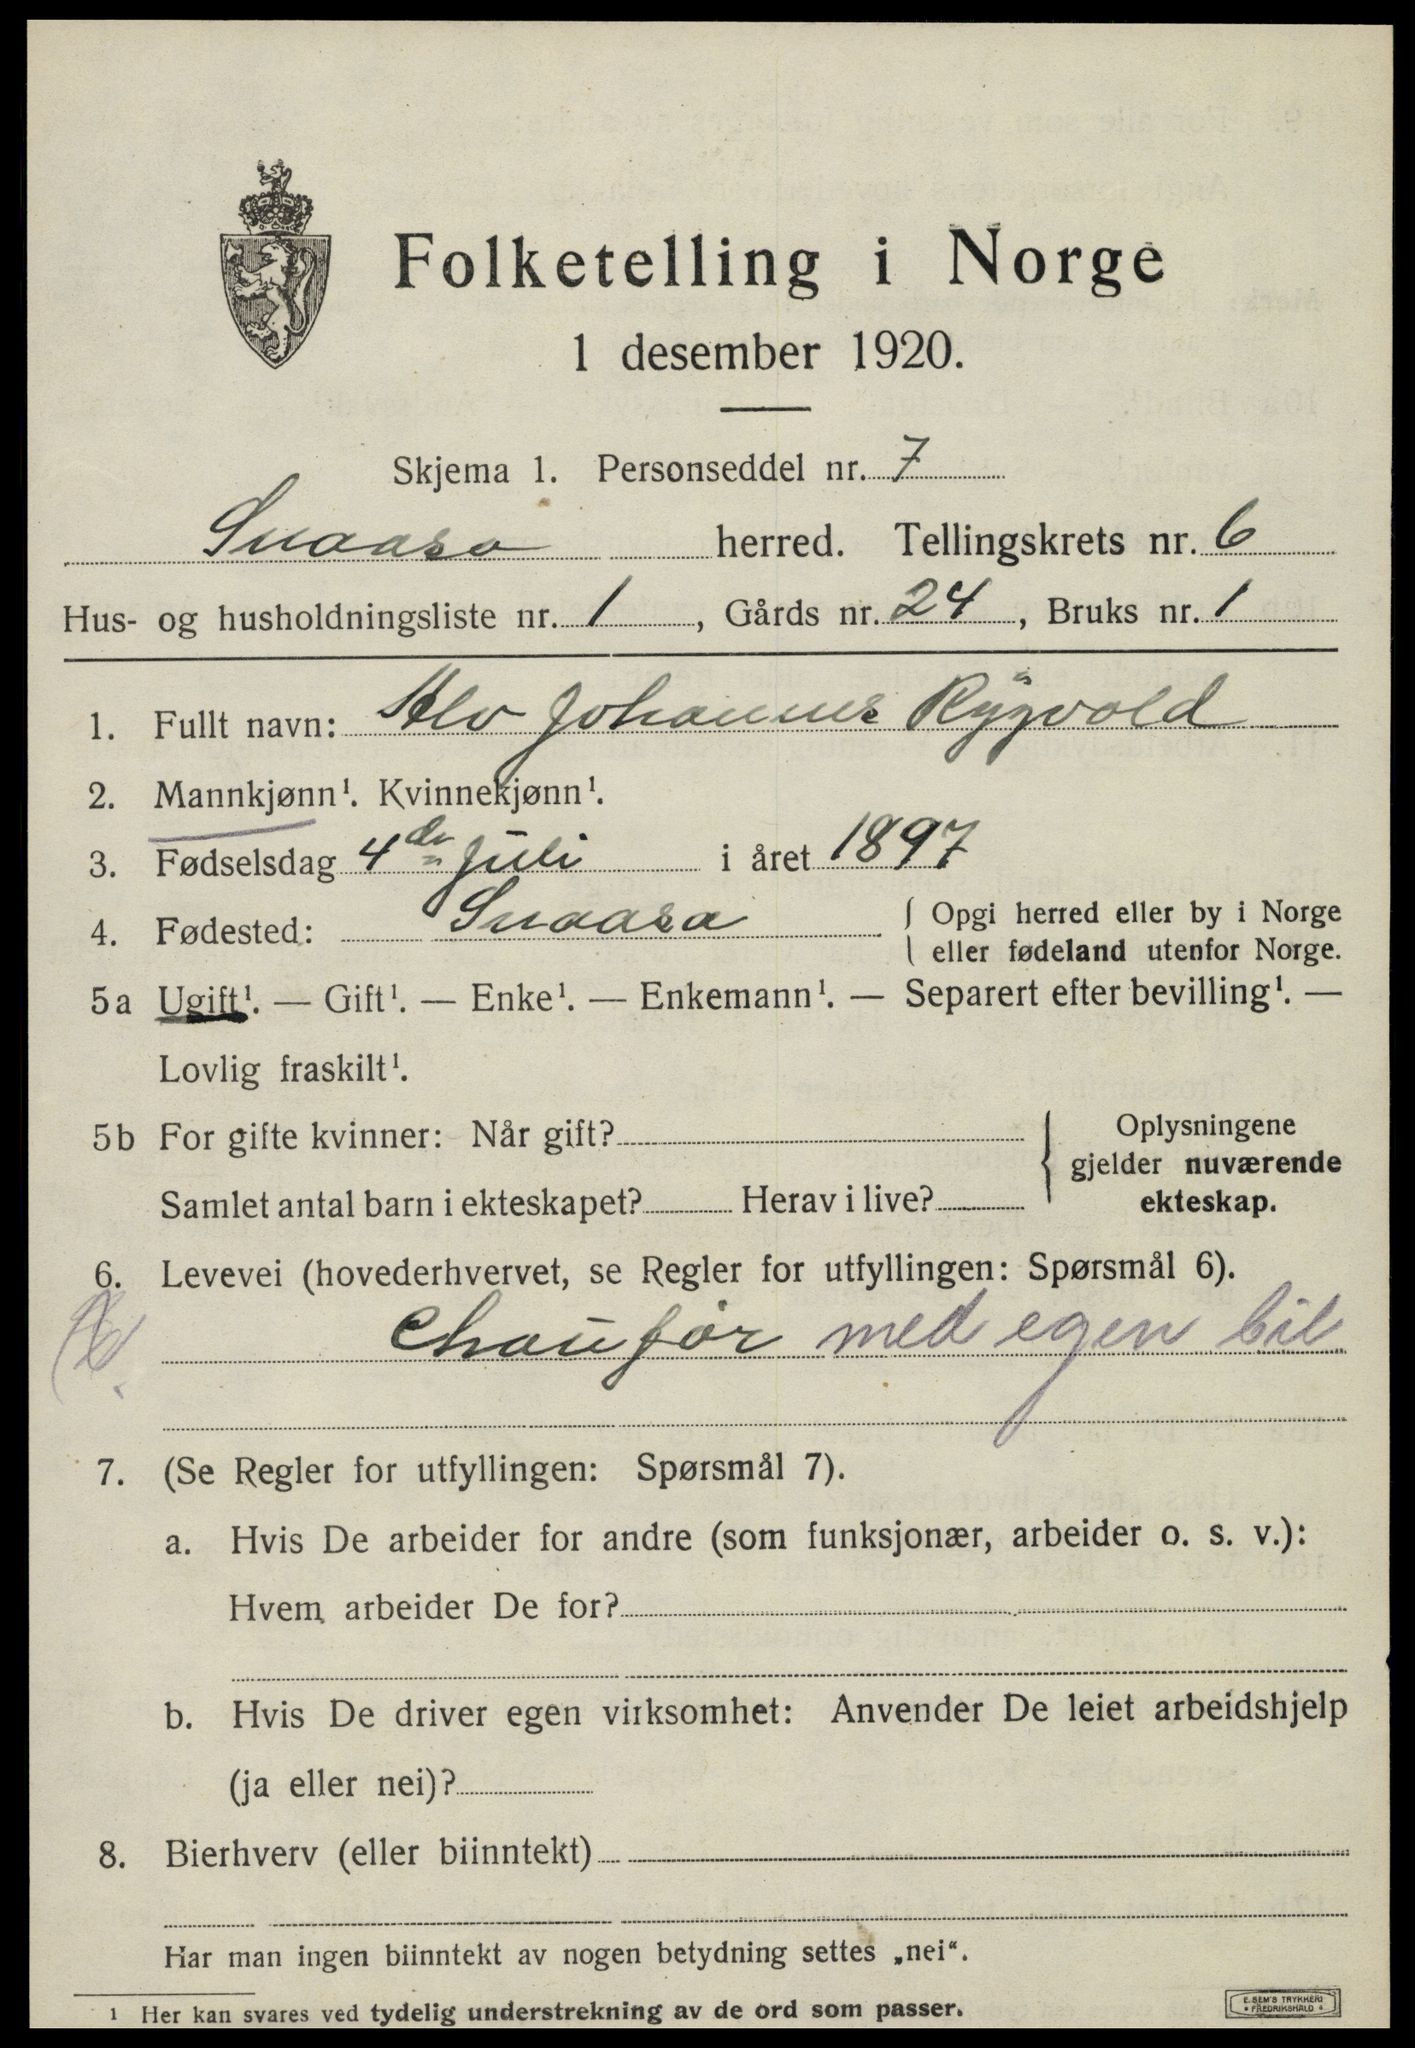 Folketelling i Norge
1 desember 1920.
Skjema 1. Personseddel nr. 7
Snaasa herred. Tellingskrets nr. 6
Hus- og husholdningsliste nr. 1, Gårds nr. 24, Bruks nr. 1
1. Fullt navn: Alv Johannes Rygvold
2. Mannkjønn¹. Kvinnekjønn¹.
3. Fødselsdag 4de juli i året 1897
4. Fødested: Snaasa { Opgi herred eller by i Norge
eller fødeland utenfor Norge.
5a Ugift¹. — Gift¹. — Enke¹. — Enkemann¹. — Separert efter bevilling¹. —
Lovlig fraskilt¹.
5b For gifte kvinner: Når gift?
Samlet antal barn i ekteskapet? Herav i live?
Oplysningene
gjelder nuværende
ekteskap.
6. Levevei (hovederhvervet, se Regler for utfyllingen: Spørsmål 6).
Chauför med egen bil
7. (Se Regler for utfyllingen: Spørsmål 7).
a. Hvis De arbeider for andre (som funksjonær, arbeider o. s. v.):
Hvem arbeider De for?
b. Hvis De driver egen virksomhet: Anvender De leiet arbeidshjelp
(ja eller nei)?
8. Bierhverv (eller biinntekt)
Har man ingen biinntekt av nogen betydning settes „nei“.
¹ Her kan svares ved tydelig understrekning av de ord som passer.
E. SEM'S TRYKKERI
FREDRIKSHALD